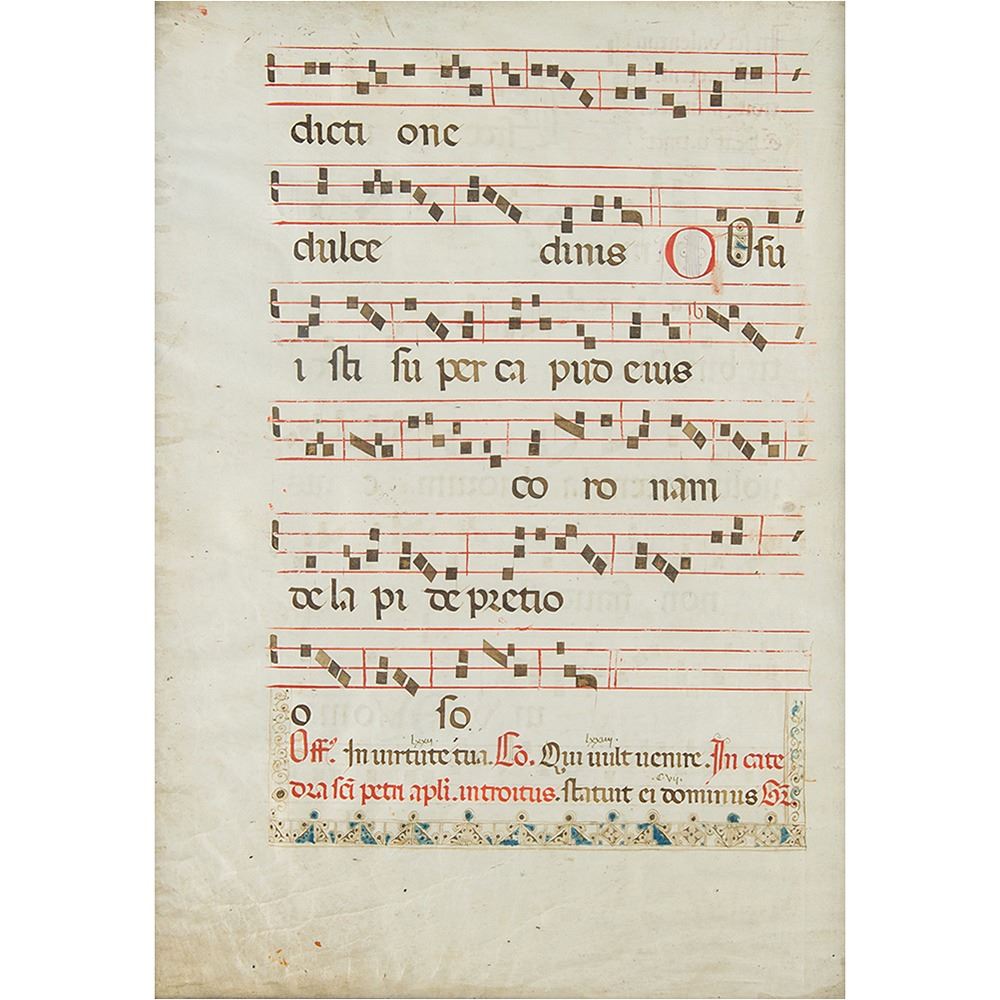 dicti one
dulce dinis O Osu
i sti su per ca pud eius
co ro nam
de la pi de pretio
o so
Off. In uirtute tua. Co. Qui uult uenire. In cate
dra sci petri apli. introitus. statuit ei dominus Gr.